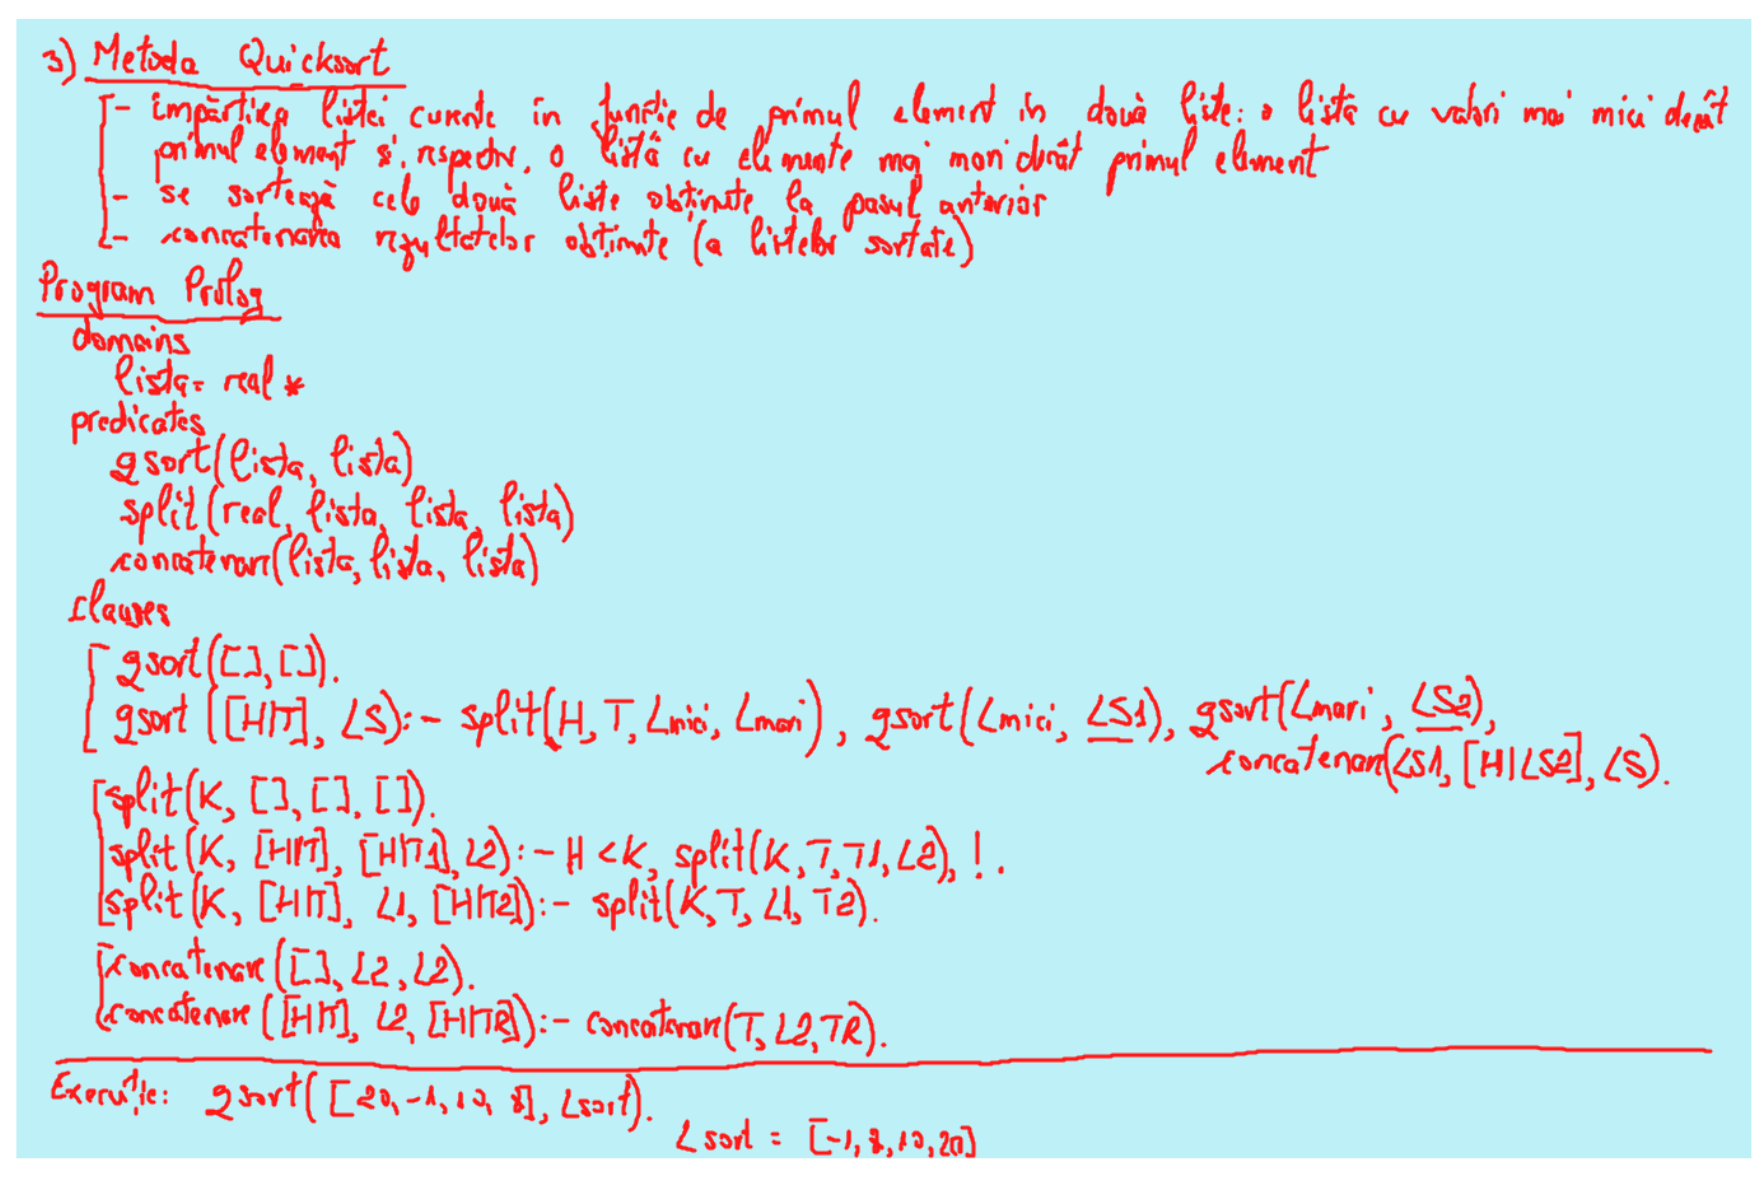 3) Metoda Quicksort
- împărțirea listei curente în funcție de primul element în două liste: o listă cu valori mai mici decât
primul element și, respectiv, o listă cu elemente mai mari decât primul element
- se sortează cele două liste obținute la pasul anterior
- concatenarea rezultatelor obținute (a listelor sortate)
Program Prolog
domains
lista= real *
predicates
qsort(lista, lista)
split(real, lista, lista, lista)
concatenare(lista, lista, lista)
clauses
qsort([], []).
qsort([H|T], LS):- split(H, T, Lmici, Lmari), qsort(Lmici, LS1), qsort(Lmari, LS2),
concatenare(LS1, [H|LS2], LS).
split(K, [], [], []).
split(K, [H|T], [H|T1], L2):- H<K, split(K,T,T1,L2), !.
split(K, [H|T], L1, [H|T2]):- split(K,T,L1,T2).
concatenare([], L2, L2).
concatenare([H|T], L2, [H|TR]):- concatenare(T, L2, TR).
Execuție: qsort([20,-1,10, 8], Lsort).
Lsort = [-1, 8, 10, 20]